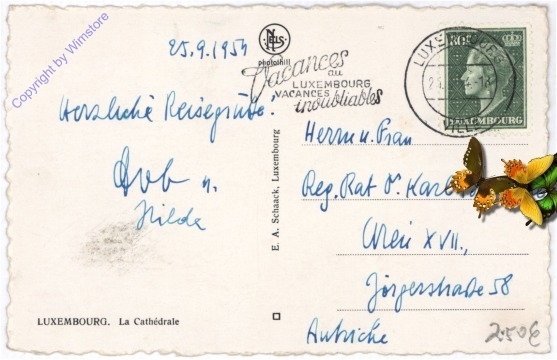 Copyright by Wimstore
25.9.1954
NELS
photothill
Vacances
au
LUXEMBOURG
VACANCES
inoubliables
LUXEMBOURG
VILLE
LUXEMBOURG
Herzliche Reisegrüße!
u.
Hilde
E. A. Schaack, Luxembourg
Herrn u. Frau
Reg. Rat Dr. Karl
Wien XVII.,
Jörgerstraße 58
Autriche
LUXEMBOURG. La Cathédrale
2.50€